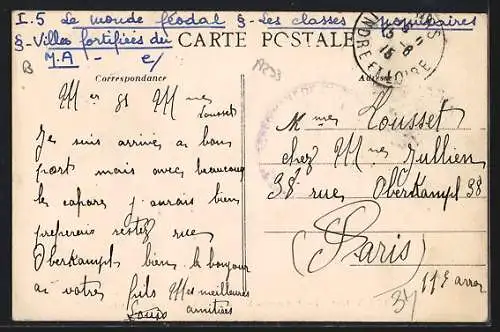 I.5 Le monde féodal §-Les classes populaires
§-Villes fortifiées du
M.A - e/
CARTE POSTALE
B
Correspondance
Adresse
INDRE ET LOIRE
Mr et Mmes
Lousset
Je suis arrivé a bon
port mais avec beaucoup
le cafard j'aurais bien
preferais restez rue
Oberkampf bien le bonjour
a votre fils Mes meilleures
Louis amitiées
Mmes Lousset
chez Mmes Jullien
38 rue Oberkampf 38
(Paris)
11e arron